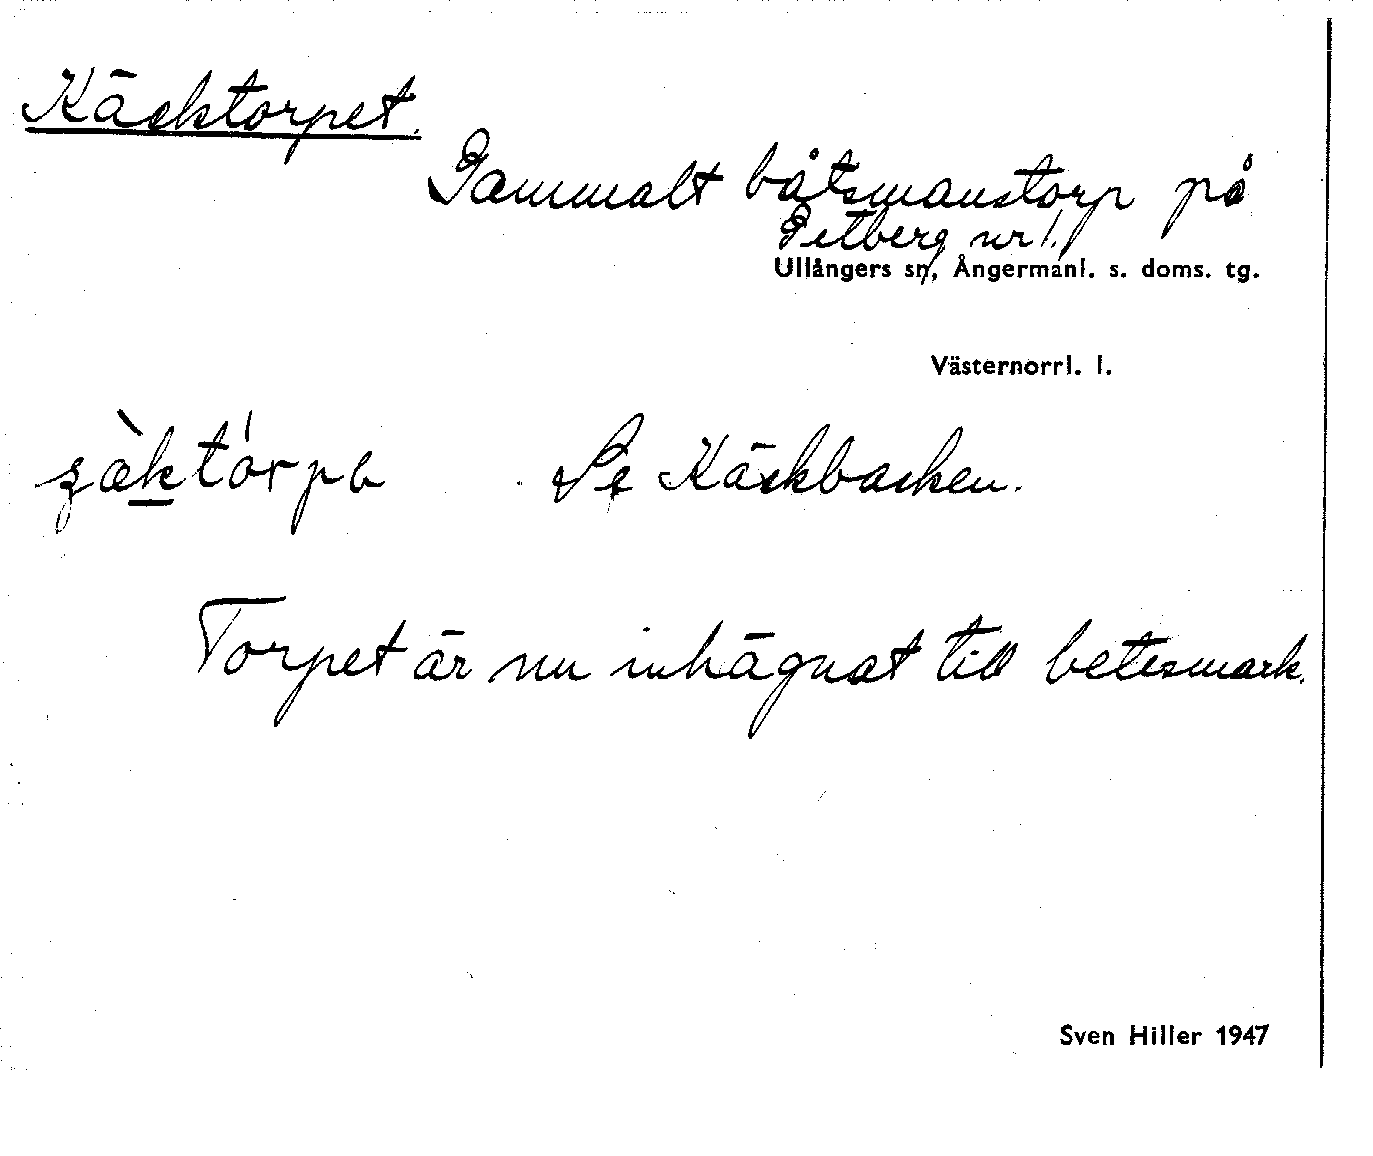 Käcktorpet.
Gammalt båtsmanstorp på
Getberg nr 1.
Ullångers sn, Ångermanl. s. doms. tg.
Västernorrl. l.
Se Käckbacken.
Torpet är nu inhägnat till betesmark.
Sven Hiller 1947